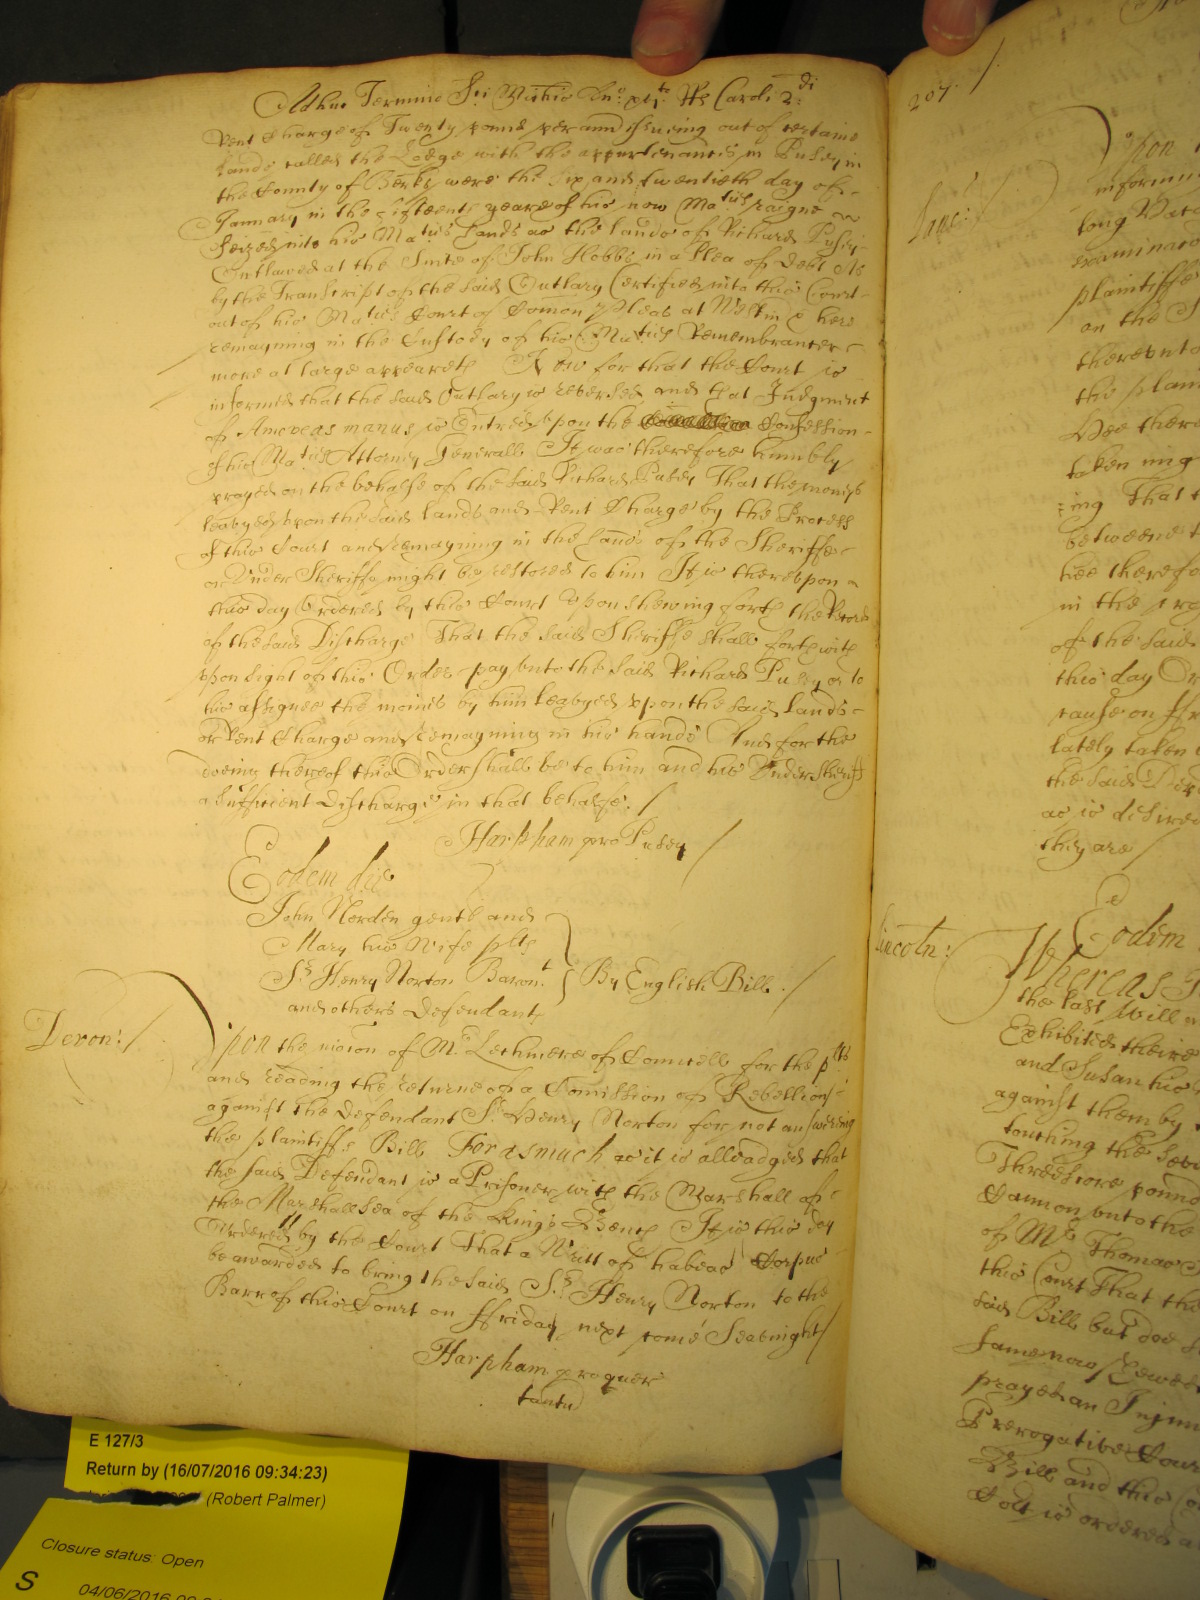 Adhuc Termino Sci Michis Anno xvjto Rs Caroli 2di
Rent Charge of Twenty pound per ann issueing out of certaine
Lands called the Lodge with the appurtenances in Pusey in
the County of Berks were the six and twentieth day of
January in the fifteenth yeare of his now Matys raigne
seized into his Matys hands as the lands of Richard Pusey
Outlawed at the Suite of John Hobbs in a Plea of debt As
by the Transcript of the said Outlary Certified into this Court
out of his Matys Court of Comon Pleas at Westm & here
remayning in the Custody of his Matys Remembrancer
more at large appeareth Now for that the Court is
informed that the said Outlary is reversed and that Judgment
of Amoveas manus is Entred upon the Confession
of his Matys Attorney Generall It was therefore humbly
prayed on the behalfe of the said Richard Pusey That the moneys
leavyed upon the said lands and Rent Charge by the Process
of this Court and remayning in the hands of the Sheriffe
or Under Sheriffe might be restored to him It is thereupon
this day Ordered by this Court Upon shewing forth the Record
of the said Discharge That the said Sheriffe shall forthwith
upon sight of this Order pay unto the said Richard Pusey or to
his assignee the monies by him leavyed upon the said lands
or Rent Charge and remayning in his hands And for the
doeing thereof this Order shall be to him and his Under Sheriff
a sufficient discharge in that behalfe. /
Harpham pro Pusey /
Eodem die
John Norden gentl and
Mary his Wife plts
Sr. Henry Norton Baront.
and others Defendants
By English Bill. /
Devon: /
Upon the mocion of Mr. Lechmere of Councell for the plts
and reading the returne of a Comission of Rebellion
against the Defendant Sr. Henry Norton for not answering
the plaintiffs Bill Forasmuch as it is alleadged that
the said Defendant is a Prisoner with the Marshall of
the Marshallsea of the Kings Bench It is this day
Ordered by the Court That a Writt of habeas Corpus
be awarded to bring the said Sr. Henry Norton to the
Barr of this Court on ffriday next come Seavnight /
Harpham pro quer
tantu
207. /
Upon
informa
long Vaca
examinacio
plaintiffe
on the S
thereunto
the plain
Hee there
taken
ing That t
betweene t
hee therefo
in the
of the said
this day Or
cause on ffr
lately taken
the said De
as is desired
they are /
Lincoln:
Eodem
Whereas
the last Will
Exhibited theire
and Susan his
against them by
touching the
Threescore pound
Cannon unto the
of Mr. Thomas
this Court That the
said Bill but doe
same
prayed an Injun
Prerogative Cour
Bill and this Co
Colt is ordered
E 127/3
Return by (16/07/2016 09:34:23)
(Robert Palmer)
Closure status: Open
S
04/06/2016